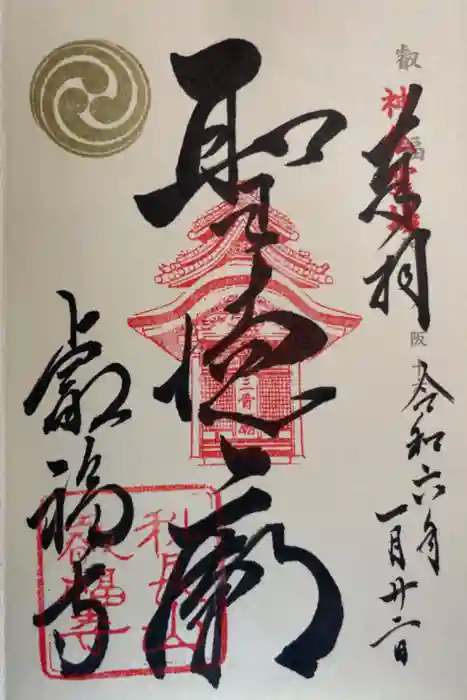 奉拝
令和六年
一月廿二日
聖徳廟
叡福寺
叡福
阪
長山
叡福寺